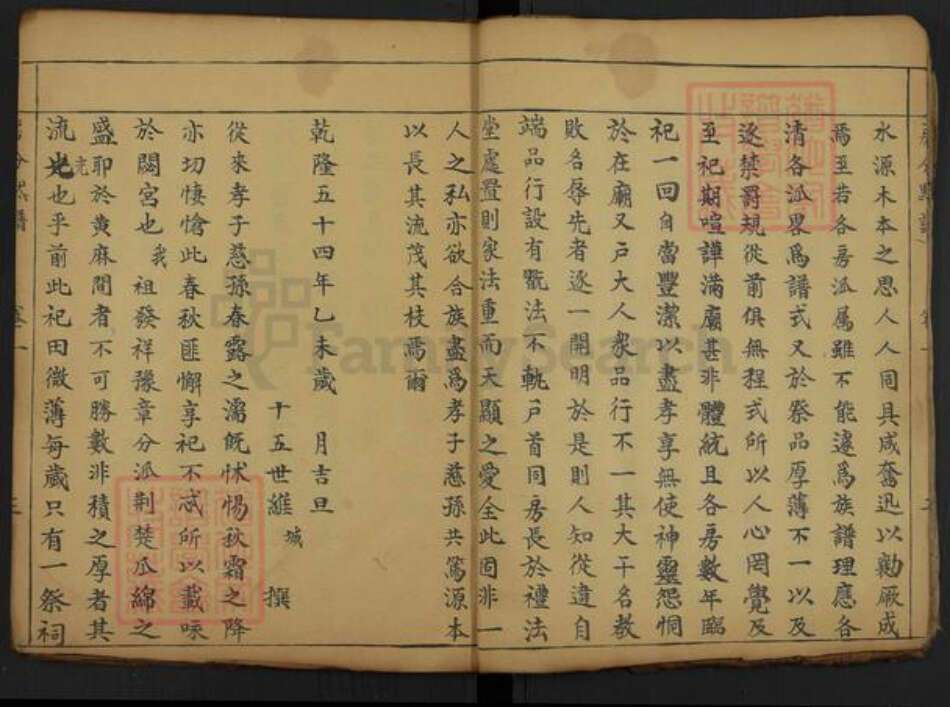 水源木本之思人人同具咸奮迅以勷厥成
焉至若各房派属雖不能遽爲族譜理應各
清各派畧爲譜式又於祭品厚薄不一以及
逐禁罰規從前俱無程式所以人心罔覺及
至祀期喧譁滿廟甚非體統且各房數年臨
祀一回自當豐潔以盡孝享無使神靈怨恫
於在廟又戸大人衆品行不一其大干名教
敗名辱先者逐一開明於是則人知從違自
端品行設有翫法不軌戸首同房長於禮法
堂處置則家法重而天顯之愛全此固非一
人之私亦欲合族盡爲孝子慈孫共篤源本
以長其流茂其枝焉爾
乾隆五十四年乙未歲 月吉旦
十五世維城 撰
從來孝子慈孫春露之濡既怵惕秋霜之降
亦切悽愴此春秋匪懈享祀不忒所以載咏
於閟宮也我祖發祥豫章分派荆楚瓜綿之
盛耶於黄麻間者不可勝數非積之厚者其
流光也乎前此祀田微薄每歲只有一祭祠
FamilySearch